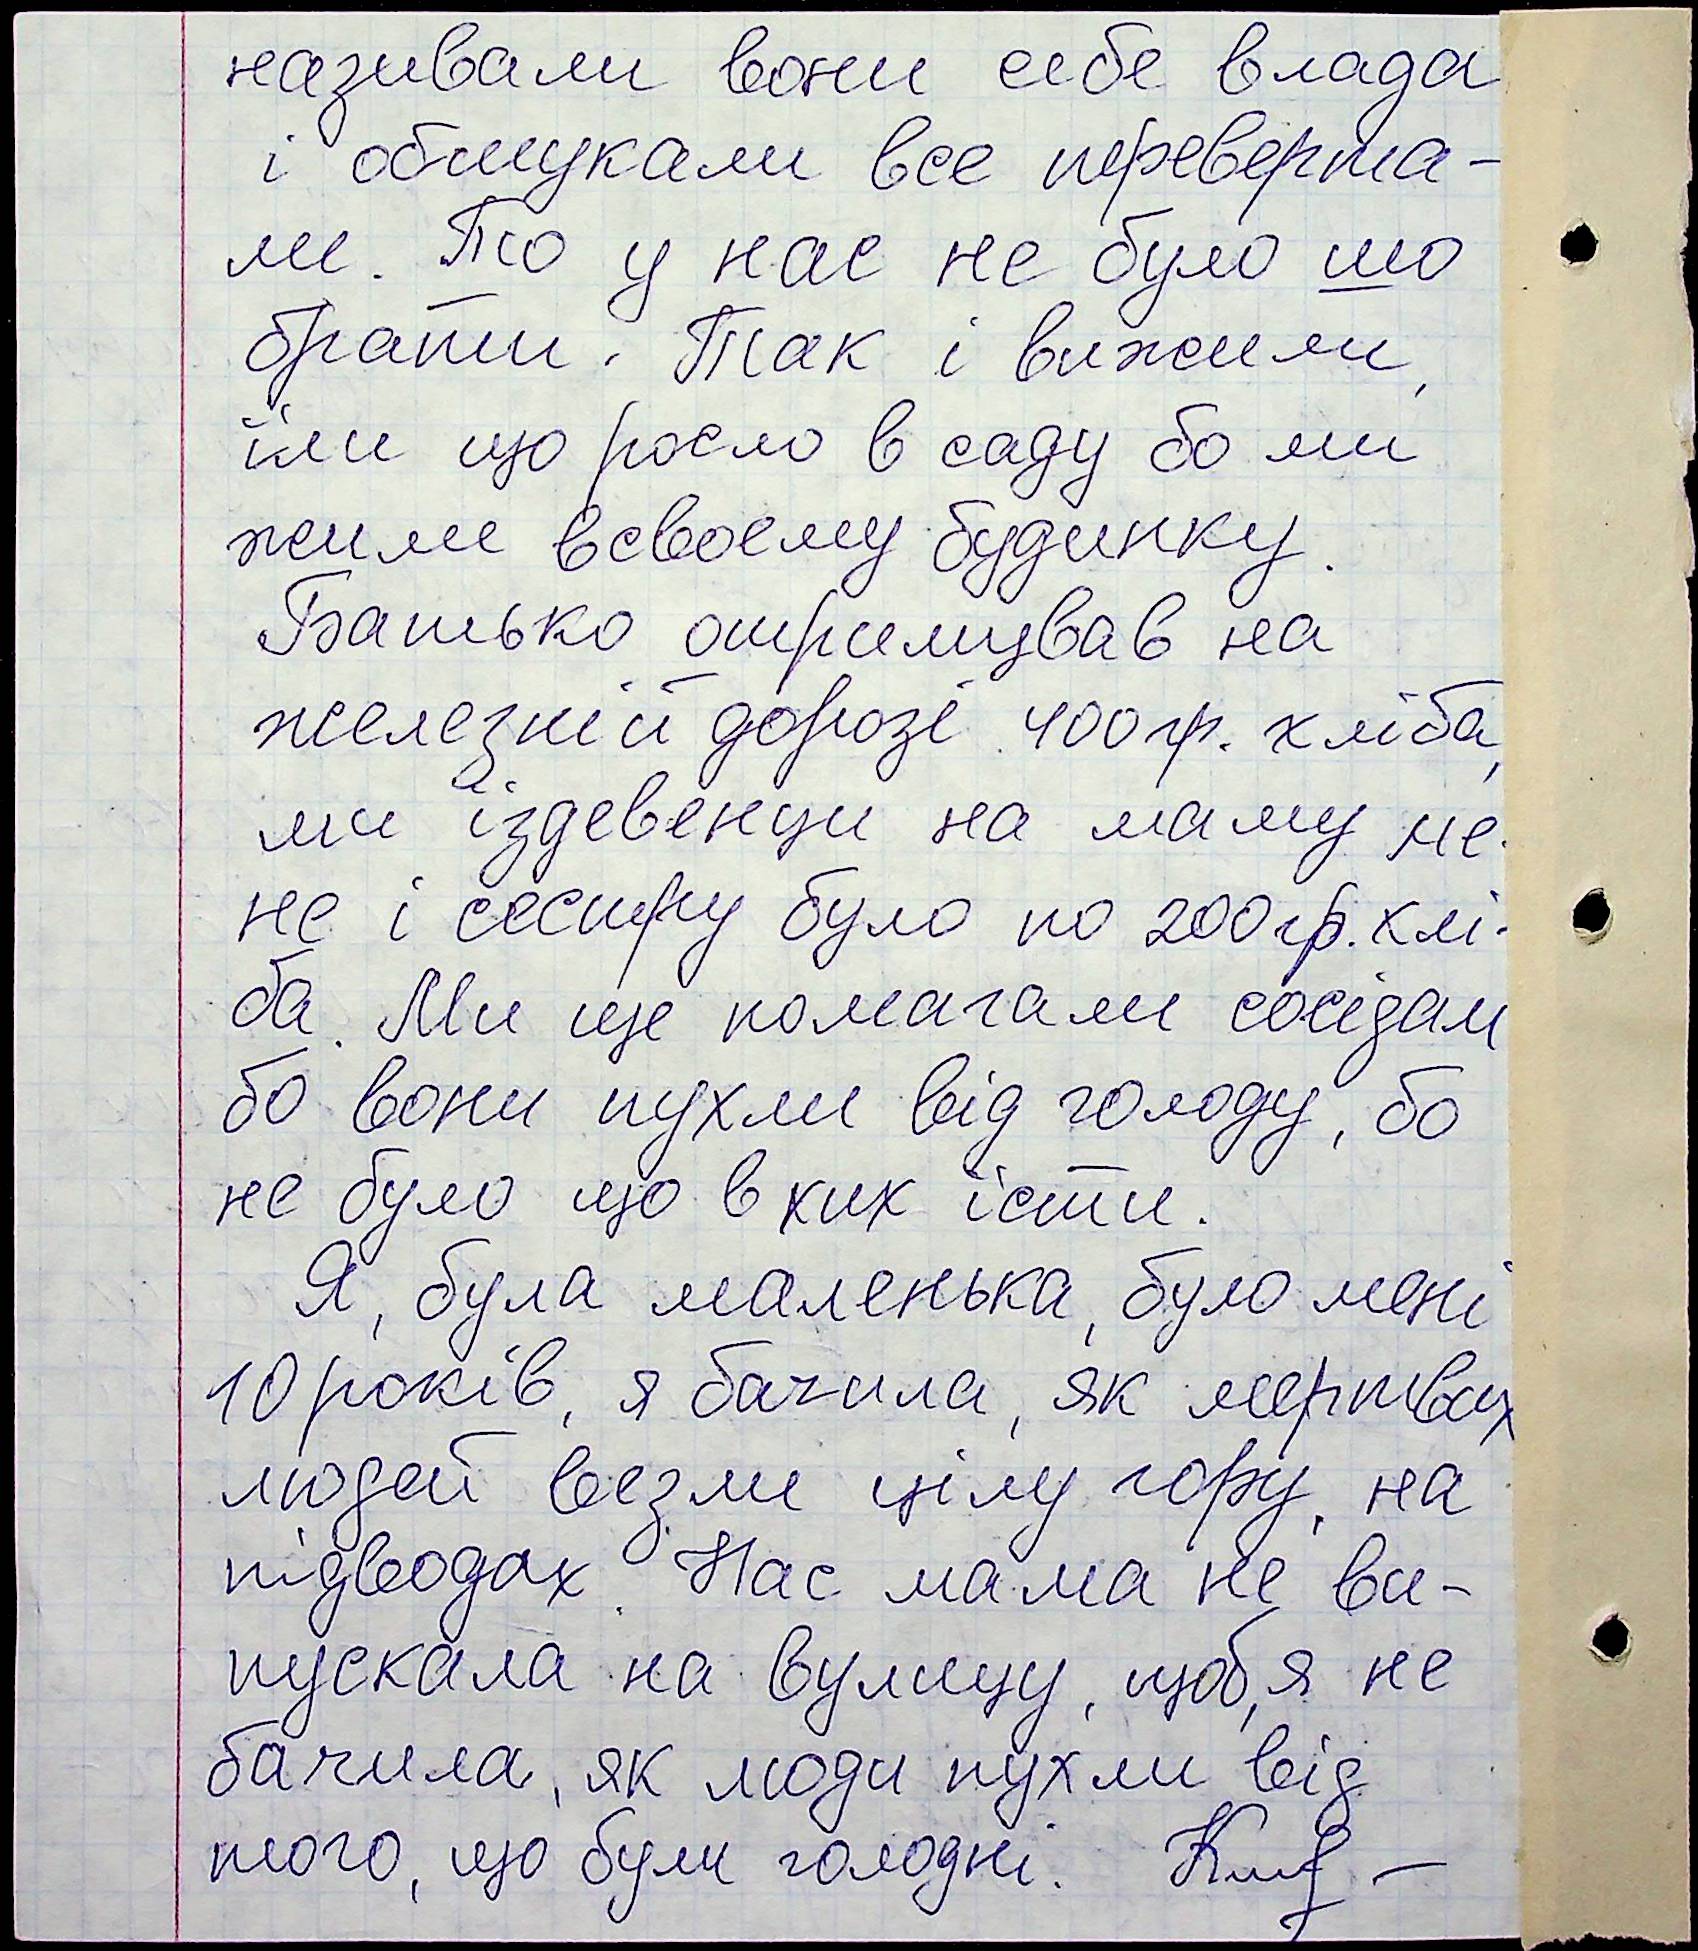 називали вони себе влада
і обшукали все переверта-
ли. То у нас не було шо
брати. Так і вижили,
їли що росло в саду бо ми
жили всвоєму будинку.
Батько отримував на
железній дорозі 400гр. хліба,
ми іздевенци на маму ме-
не і сестру було по 200гр. хлі-
ба. Ми ще помагали сосідам
бо вони пухли від голоду, бо
не було що в них їсти.
Я, була маленька, було мені
10 років, я бачила, як мертвих
людей везли цілу гору, на
підводах. Нас мама не ви-
пускала на вулицу, щоб, я не
бачила, як люди пухли від
того, що були голодні.